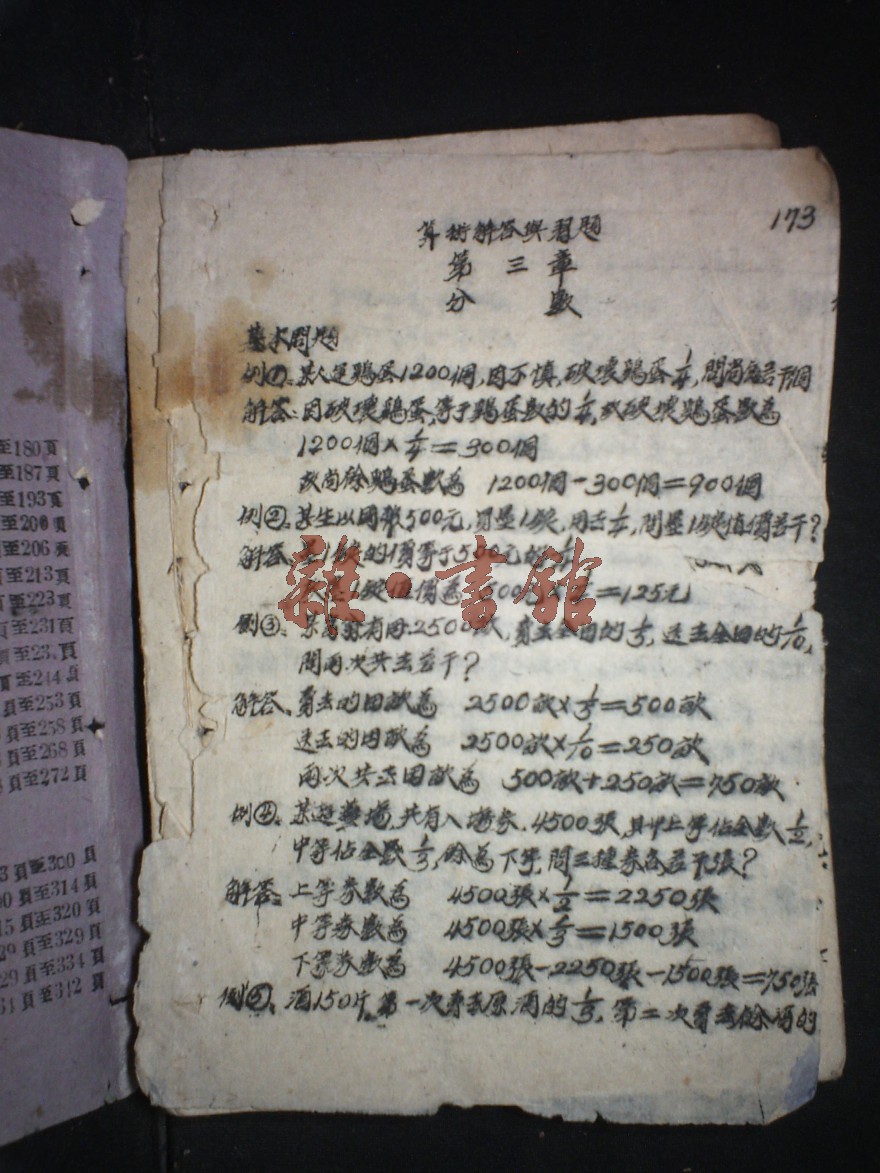 至180頁
至187頁
至193頁
至200頁
至206頁
至213頁
至223頁
至231頁
至23頁
至244頁
頁至253頁
頁至258頁
頁至268頁
頁至272頁
3頁至300頁
00頁至314頁
15頁至320頁
29頁至329頁
29頁至334頁
34頁至342頁
173
算術解答與習題
第三章
分數
基本問題
例①、某人運鷄蛋1200個,因不慎,破壞鷄蛋1/4,問尚餘若干個
解答:因破壞鷄蛋,等于鷄蛋數的1/4,故破壞鷄蛋數為
1200個×1/4=300個
故尚餘鷄蛋數為 1200個-300個=900個
例②、某生以国幣500元,買墨1錠,用去1/4,問墨1錠值價若干?
解答、墨1錠的價等于500元的1/4
故墨1錠值價為 500元×1/4=125元
例③、某有田2500畝,賣去全田的1/5,送去全田的1/10,
問兩次共去若干?
解答、賣去的田畝為 2500畝×1/5=500畝
送去的田畝為 2500畝×1/10=250畝
兩次共去田畝為 500畝+250畝=750畝
例④、某遊藝場,共有入場券,4500張,其中上等佔全數1/2,
中等佔全數1/3,餘為下等,問三種券各若干張?
解答:上等券數為 4500張×1/2=2250張
中等券數為 4500張×1/3=1500張
下等券數為 4500張-2250張-1500張=750張
例⑤、酒150斤,第一次賣去原酒的1/3,第二次賣去餘酒的
雜·書館